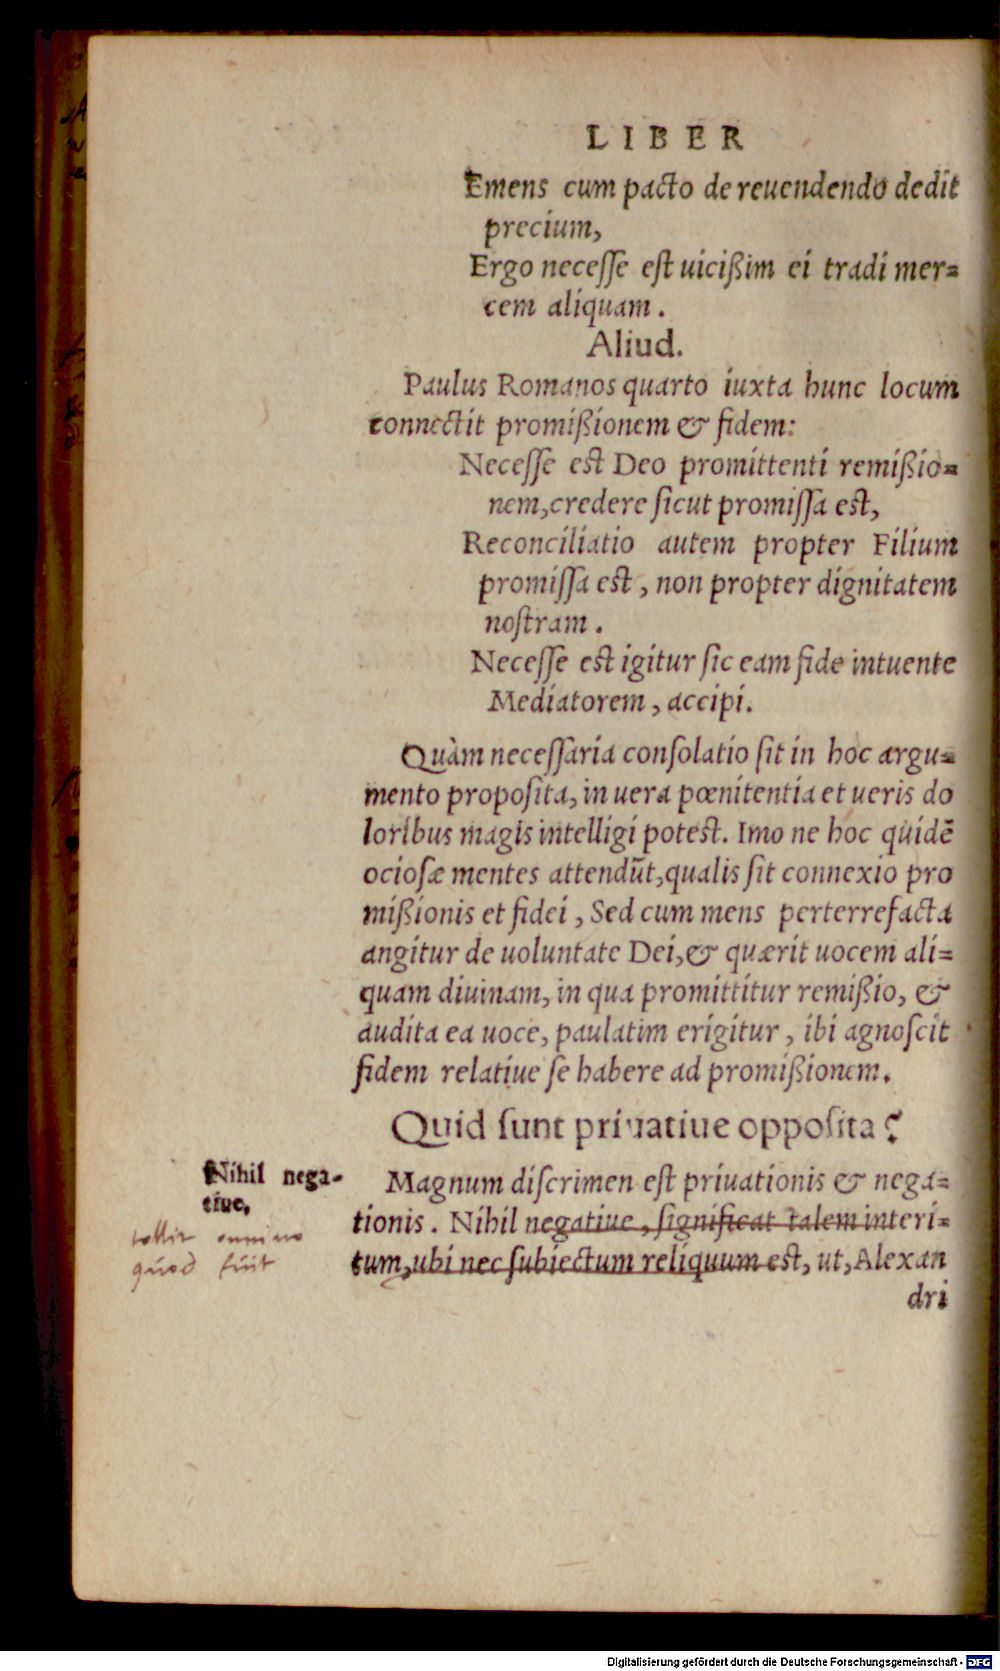 LIBER
Emens cum pacto de reuendendo dedit
precium,
Ergo necesse est uicißim ei tradi mer=
cem aliquam.
Aliud.
Paulus Romanos quarto iuxta hunc locum
connectit promißionem & fidem:
Necesse est Deo promittenti remißio=
nem, credere sicut promissa est,
Reconciliatio autem propter Filium
promissa est, non propter dignitatem
nostram.
Necesse est igitur sic eam fide intuente
Mediatorem, accipi.
Quàm necessaria consolatio sit in hoc argu=
mento proposita, in uera pœnitentia et ueris do
loribus magis intelligi potest. Imo ne hoc quidẽ
ociosæ mentes attendũt, qualis sit connexio pro
mißionis et fidei, Sed cum mens perterrefacta
angitur de uoluntate Dei, & quærit uocem ali=
quam diuinam, in qua promittitur remißio, &
audita ea uoce, paulatim erigitur, ibi agnoscit
fidem relatiue se habere ad promißionem.
Quid sunt priuatiue opposita?
Nihil nega-
tiue,
tollit omnino
quod fuit
Magnum discrimen est priuationis & nega=
tionis. Nihil negatiue, significat talem interi=
tum, ubi nec subiectum reliquum est, ut, Alexan
dri
Digitalisierung gefördert durch die Deutsche Forschungsgemeinschaft - DFG